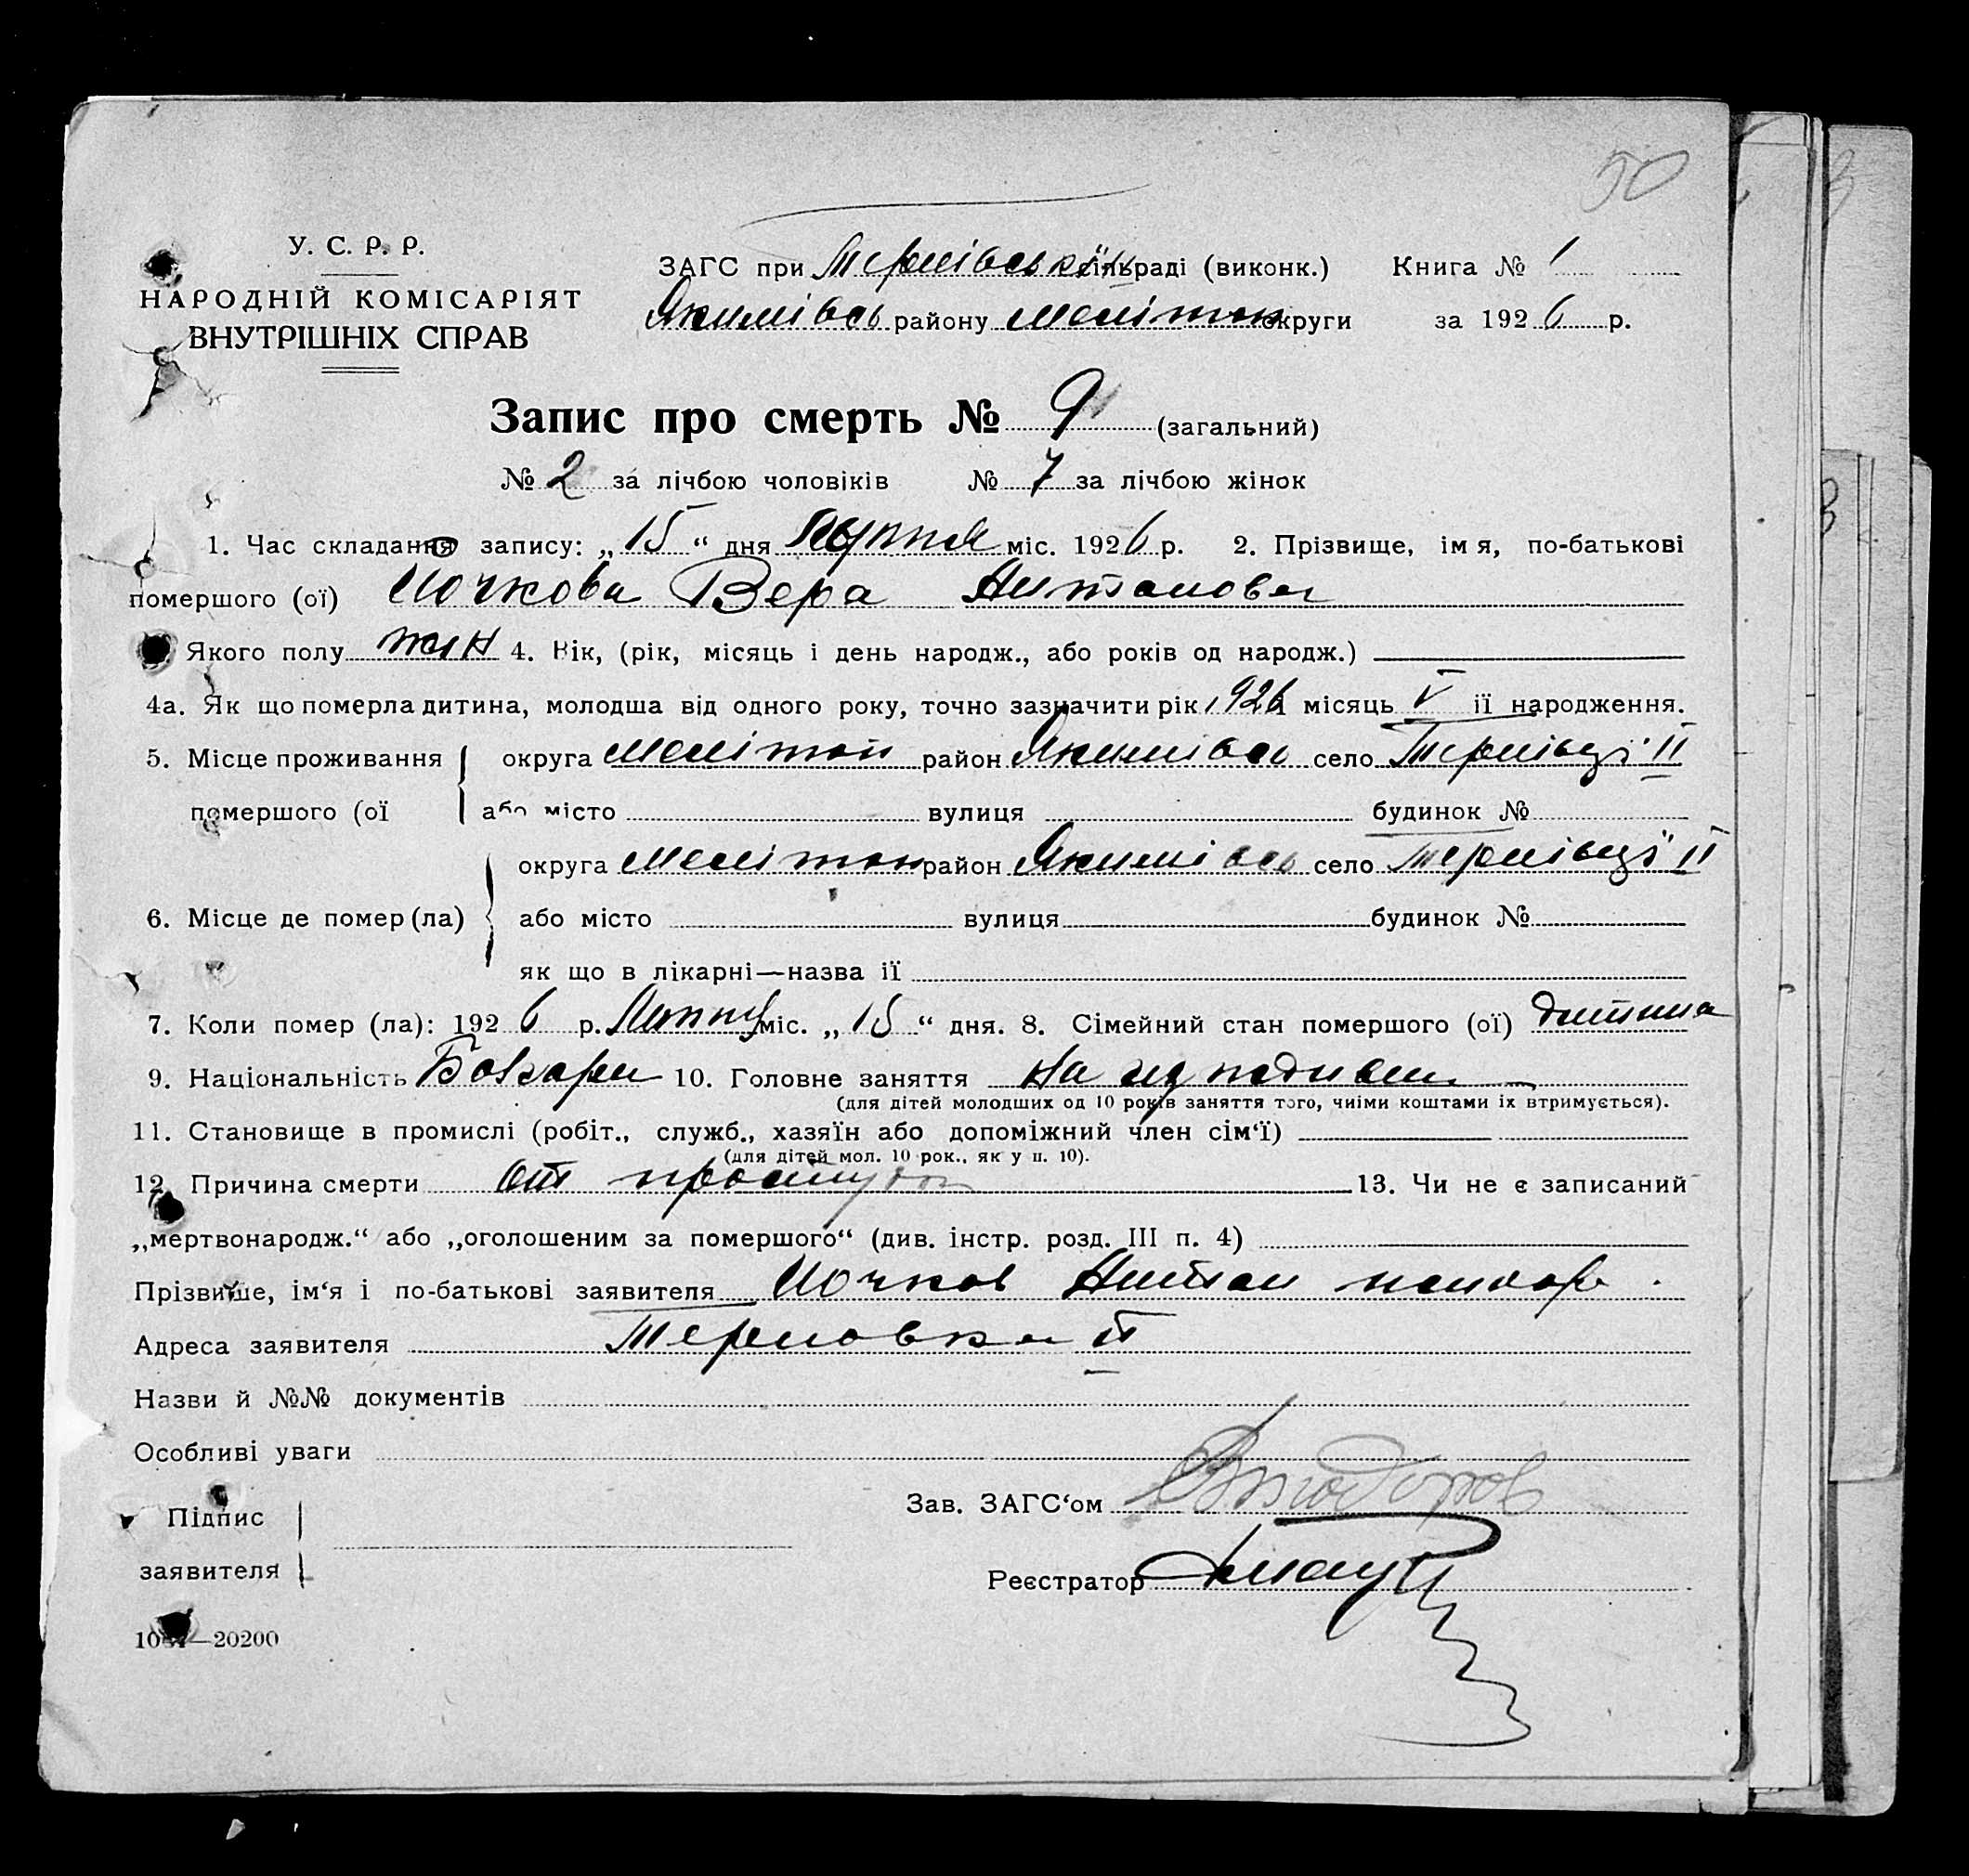 50
У. С. Р. Р.
НАРОДНІЙ КОМІСАРІЯТ
ВНУТРІШНІХ СПРАВ
ЗАГС при Тернівській сільраді (виконк.) Книга № 1
Якимівсь району Мелітоп округи за 1926 р.
Запис про смерть № 9 (загальний)
№ 2 за лічбою чоловіків № 7 за лічбою жінок
1. Час складання запису: „15“ дня Лупня міс. 1926 р. 2. Прізвище, імя, по-батькові
помершого (ої) Почкова Вера Антонова
Якого полу жін 4. Вік, (рік, місяць і день народж., або років од народж.)
4а. Як що померла дитина, молодша від одного року, точно зазначити рік 1926 місяць V її народження.
5. Місце проживання округа Мелітоп район Якимівсь село Тернівці II
помершого (ої або місто вулиця будинок №
округа Мелітоп район Якимівсь село Тернівці II
6. Місце де помер (ла) або місто вулиця будинок №
як що в лікарні—назва її
7. Коли помер (ла): 1926 р. міс. „15“ дня. 8. Сімейний стан помершого (ої) дитина
9. Національність Болгари 10. Головне заняття На
(для дітей молодших од 10 років заняття того, чиїми коштами їх втримується).
11. Становище в промислі (робіт., служб., хазяїн або допоміжний член сім‘ї)
(для дітей мол. 10 рок., як у п. 10).
12. Причина смерти от простуды 13. Чи не є записаний
„мертвонародж.“ або „оголошеним за помершого“ (див. інстр. розд. III п. 4)
Прізвище, ім‘я і по-батькові заявителя Почков Антон
Адреса заявителя Терновка II
Назви й №№ документів
Особливі уваги
Зав. ЗАГС‘ом
Підпис
заявителя
Реєстратор
—20200